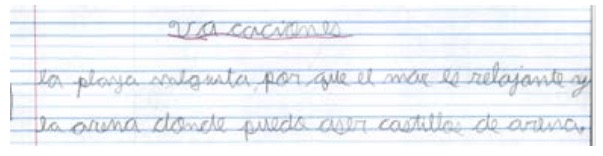 Va caciones
la playa megusta, por que el mar es relajante y
la arena donde puedo aser castillos de arena.